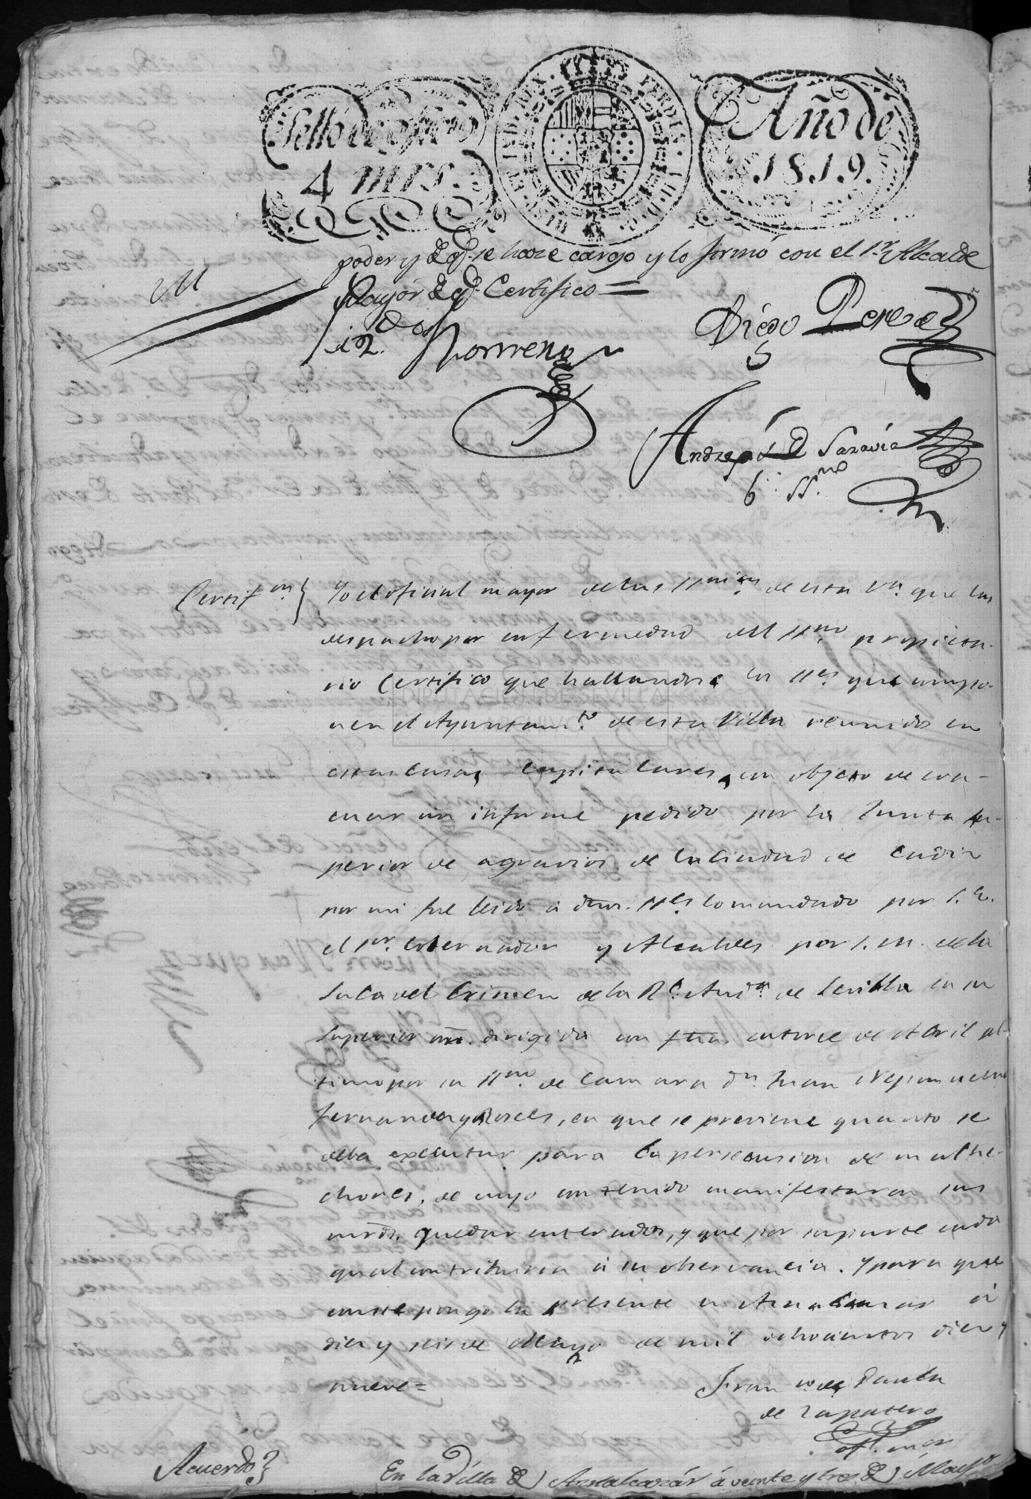 Sello de oficio
4 mrs.
Año de
1819.
poder y de q.e se hace cargo y lo firmó con el S.r Alcalde
Mayor de q.e Certifico =
Diego Perez
Andres de Saravia
SS.no
Certif.on } Yo el oficial mayor de las SS.nias de esta V.a que las
despacho por enfermedad del SS.no propieta-
rio Certifico que hallandose los SS.es que compo-
nen el Ayuntam.to de esta Villa reunidos en
estas Casas Capitulares, con objeto de eva-
cuar un informe pedido por la Junta su-
perior de agravios de la Ciudad de Cadiz
por mi fue leido a dhos. SS.es lo mandado por S.E.
el S.or Gobernador y Alcaldes por S.M. de la
Sala del Crimen de la R.l Aud.a de Sevilla en su
Superior orn. dirigida con fha catorce de Abril ul-
timo por su SS.no de Camara D.n Juan Nepomuceno
Fernandez y Roces, en que se previene quanto se
deba executar para la persecusion de malhe-
chores, de cuyo contenido manifestaron sus
mrds. quedar enterados, y que por su parte cada
qual contribuiria a su observancia. Y para que
conste pongo la presente en Aznalcazar á
diez y seis de Mayo de mil ochocientos diez y
nueve =
Fran.co de Paula
de Zapatero
of.l mor
Acuerdo } En la Villa de Aznalcazar á veinte y tres de Mayo